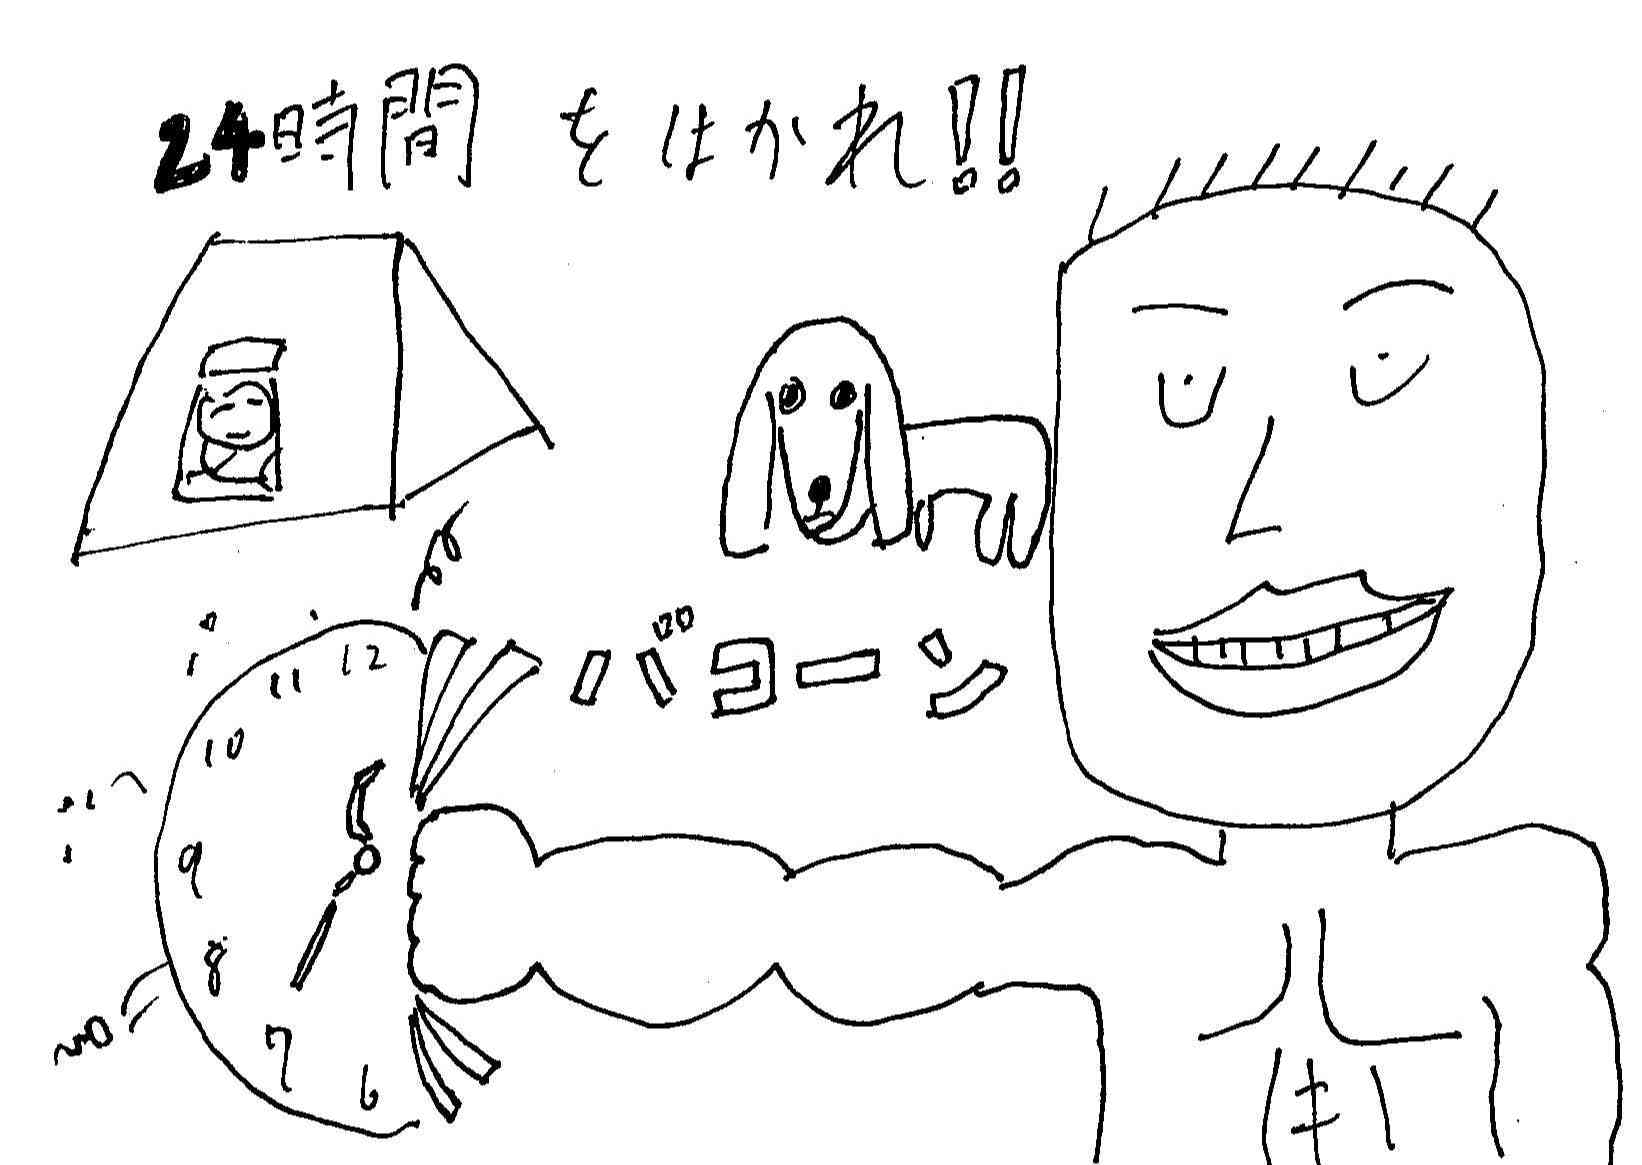 24時間をはかれ!!
バヨーン
12
11
10
9
8
7
6